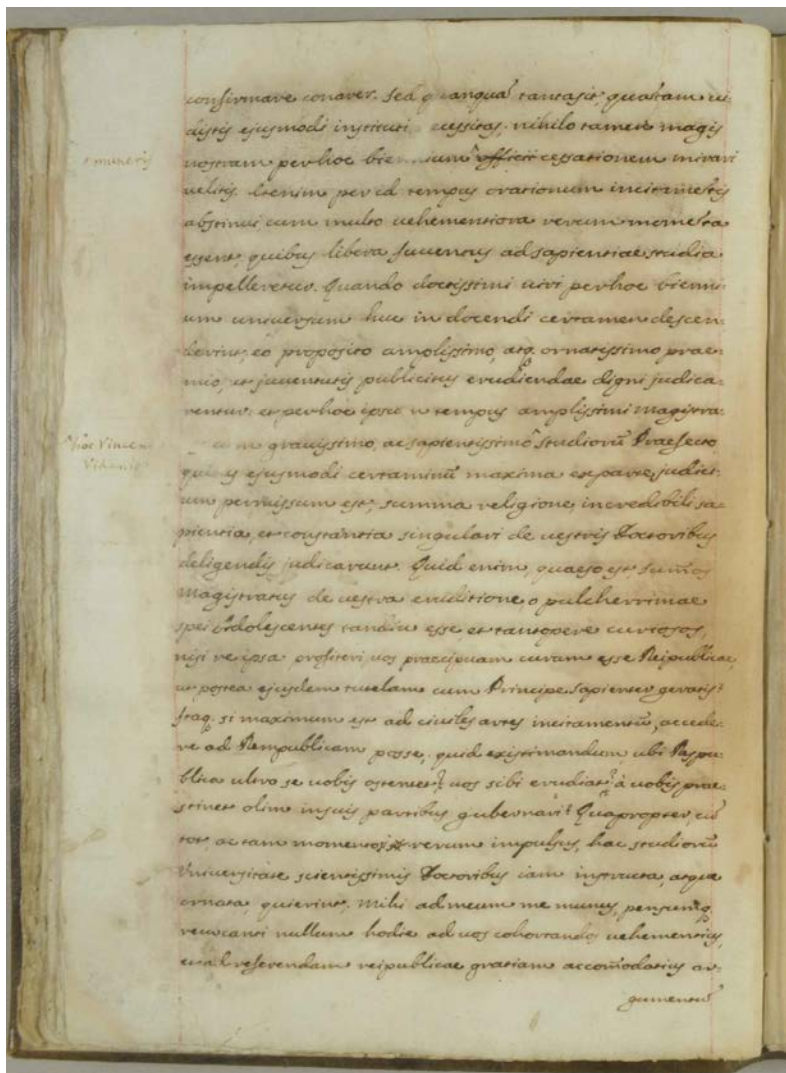 confirmare conarer. Sed quanquā tanta sit, quātam ui-
distis ejusmodi instituti necessitas: nihilo tamen magis
muneris
nostram per hoc biennium officii cessationem mirari
uelitis. Etenim per id tempus orationum incitamētis
abstinui cum multo uehementiora rerum momēta
essent, quibus libera Juuentus ad sapientiae studia
impelleretur. Quando doctissimi uiri per hoc bienni-
um uniuersum huc in docendi certamen descen-
derint, eo proposito amplissimo, atq. ornatissimo prae-
mio, ut juuentutis publicitus erudiendae digni judica-
rentur: et per hoc ipsum tempus amplissimi Magistra-
hoc Vincen
Vidania
cum grauissimo, ac sapientissimo Studiorū Praefecto
quibus ejusmodi certaminū maxima ex parte judici-
um permissum est, summa religione, incredibili sa-
pientia, et constantia singulari de uestris Doctoribus
deligendis judicarunt. Quid enim, quaeso est, summos
Magistratus de uestra eruditione o pulcherrimae
spei Adolescentes tandiu esse et tantopere curiosos,
nisi re ipsa profiteri uos praecipuam curam esse Reipublicae,
ut postea ejusdem tutelam cum Principe sapienter geratis?
Itaq. si maximum est ad ciuiles artes incitamentū, accede-
re ad Rempublicam posse; quid existimandum, ubi Respu-
blica ultro se uobis ostentet? uos sibi erudiat? à uobis prae-
stinet olim in suis partibus gubernari? Quapropter, cū
tot, ac tam momentosi rerum impulsus, hac studiorū
Vniuersitate scientissimis Doctoribus iam instructa, atque
ornata, quierint: Mihi ad meum me munus, pensumq.
reuocanti nullum hodie ad uos cohortandos uehementius,
et ad referendam reipublicae gratiam accomodatius ar-
gumentū